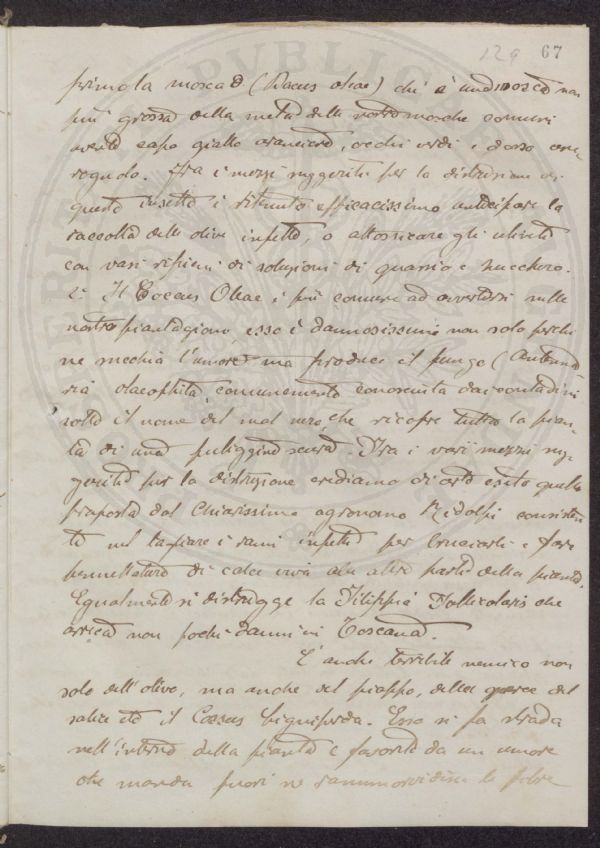 129 67
primo la mosca (Dacus oleae) ch' è una mosca non
più grossa della metà delle nostre mosche comuni
avente capo giallo aranciato, occhi verdi e dorso cene-
rognolo. Fra i mezzi suggeriti per la distruzione di
questo insetto è ritenuto efficacissimo anticipare la
raccolta delle olive infette, o attossicare gli
con vasi ripieni di soluzioni di quassio e zucchero.
2° Il Coccus Oleae è più comune ad avvertirsi nelle
nostre piantagioni, esso è dannosissimo non solo perchè
ne succhia l'umore ma produce il fungo (Antenna-
ria olaeophila, comunemente conosciuta dai contadini
sotto il nome del mal nero, che ricopre tutta la pian-
ta di una fuliggine scura. Fra i varii mezzi sug-
geriti per la distruzione crediamo di certo esito quello
proposto dal Chiarissimo agronomo Ridolfi consisten-
te nel tagliare i rami infetti per bruciarli e fare
di calce viva alle altre parti della pianta.
Egualmente si distrugge la Filippia Follicolaris che
arreca non pochi danni in Toscana.
È anche terribile nemico non
solo dell'olivo, ma anche del pioppo, della del
salice etc il Cossus ligniperda. Esso si fa strada
nell'interno della pianta e favorito da un umore
che manda fuori ne rammorvidisce le fibre
PVBLICAE